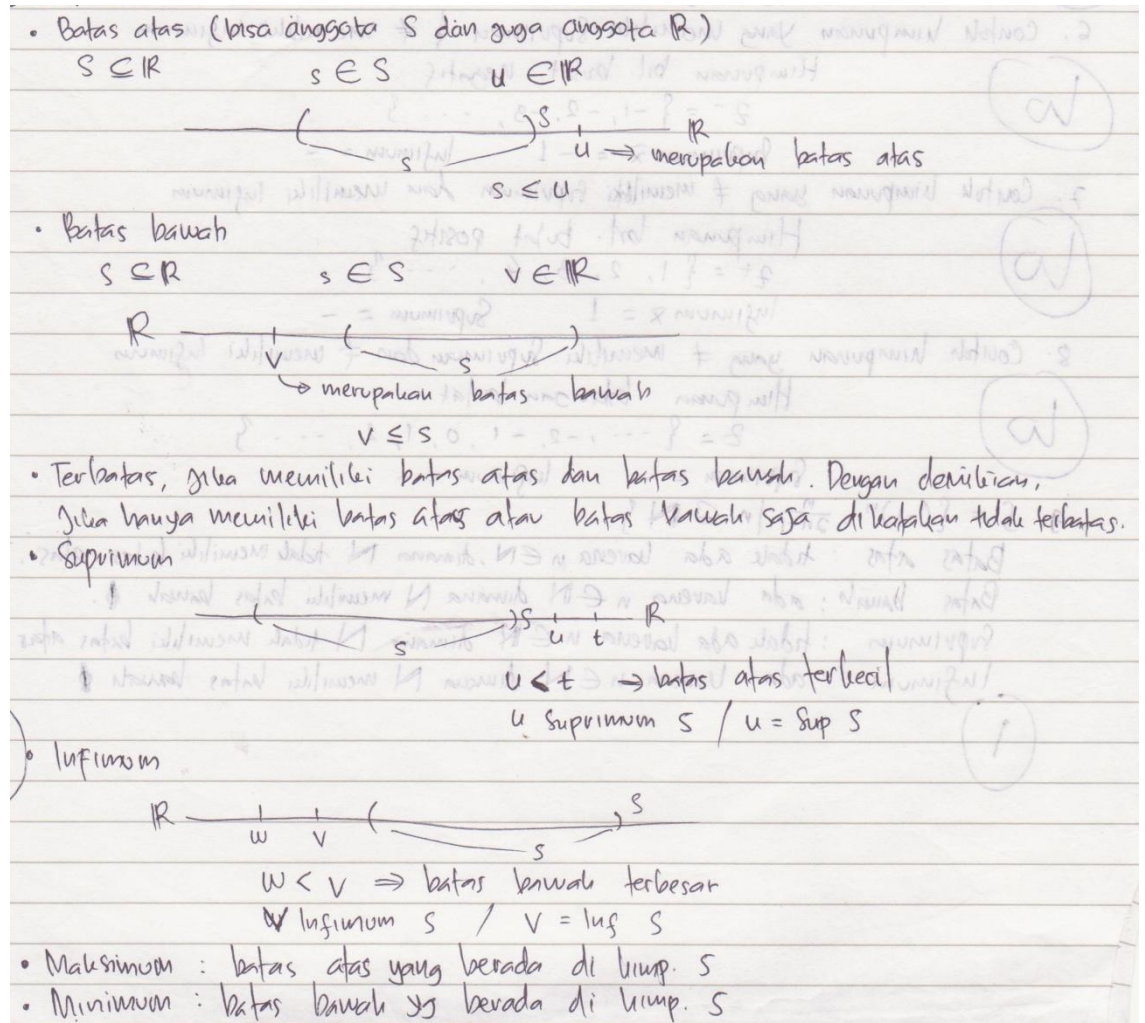 • Batas atas (bisa anggota S dan juga anggota ℝ)
S ⊆ ℝ s ∈ S u ∈ ℝ
( )S ℝ
S u → merupakan batas atas
s ≤ u
• Batas bawah
S ⊆ ℝ s ∈ S v ∈ ℝ
ℝ ( )
v S
→ merupakan batas bawah
v ≤ s
• Terbatas, jika memiliki batas atas dan batas bawah. Dengan demikian,
jika hanya memiliki batas atas atau batas bawah saja dikatakan tidak terbatas.
• Suprimum
( )S ℝ
S u t
u < t → batas atas terkecil
u Suprimum S / u = Sup S
• Infimum
ℝ ( ) S
w v S
w < v ⇒ batas bawah terbesar
v Infimum S / v = Inf S
• Maksimum : batas atas yang berada di himp. S
• Minimum : batas bawah yg berada di himp. S